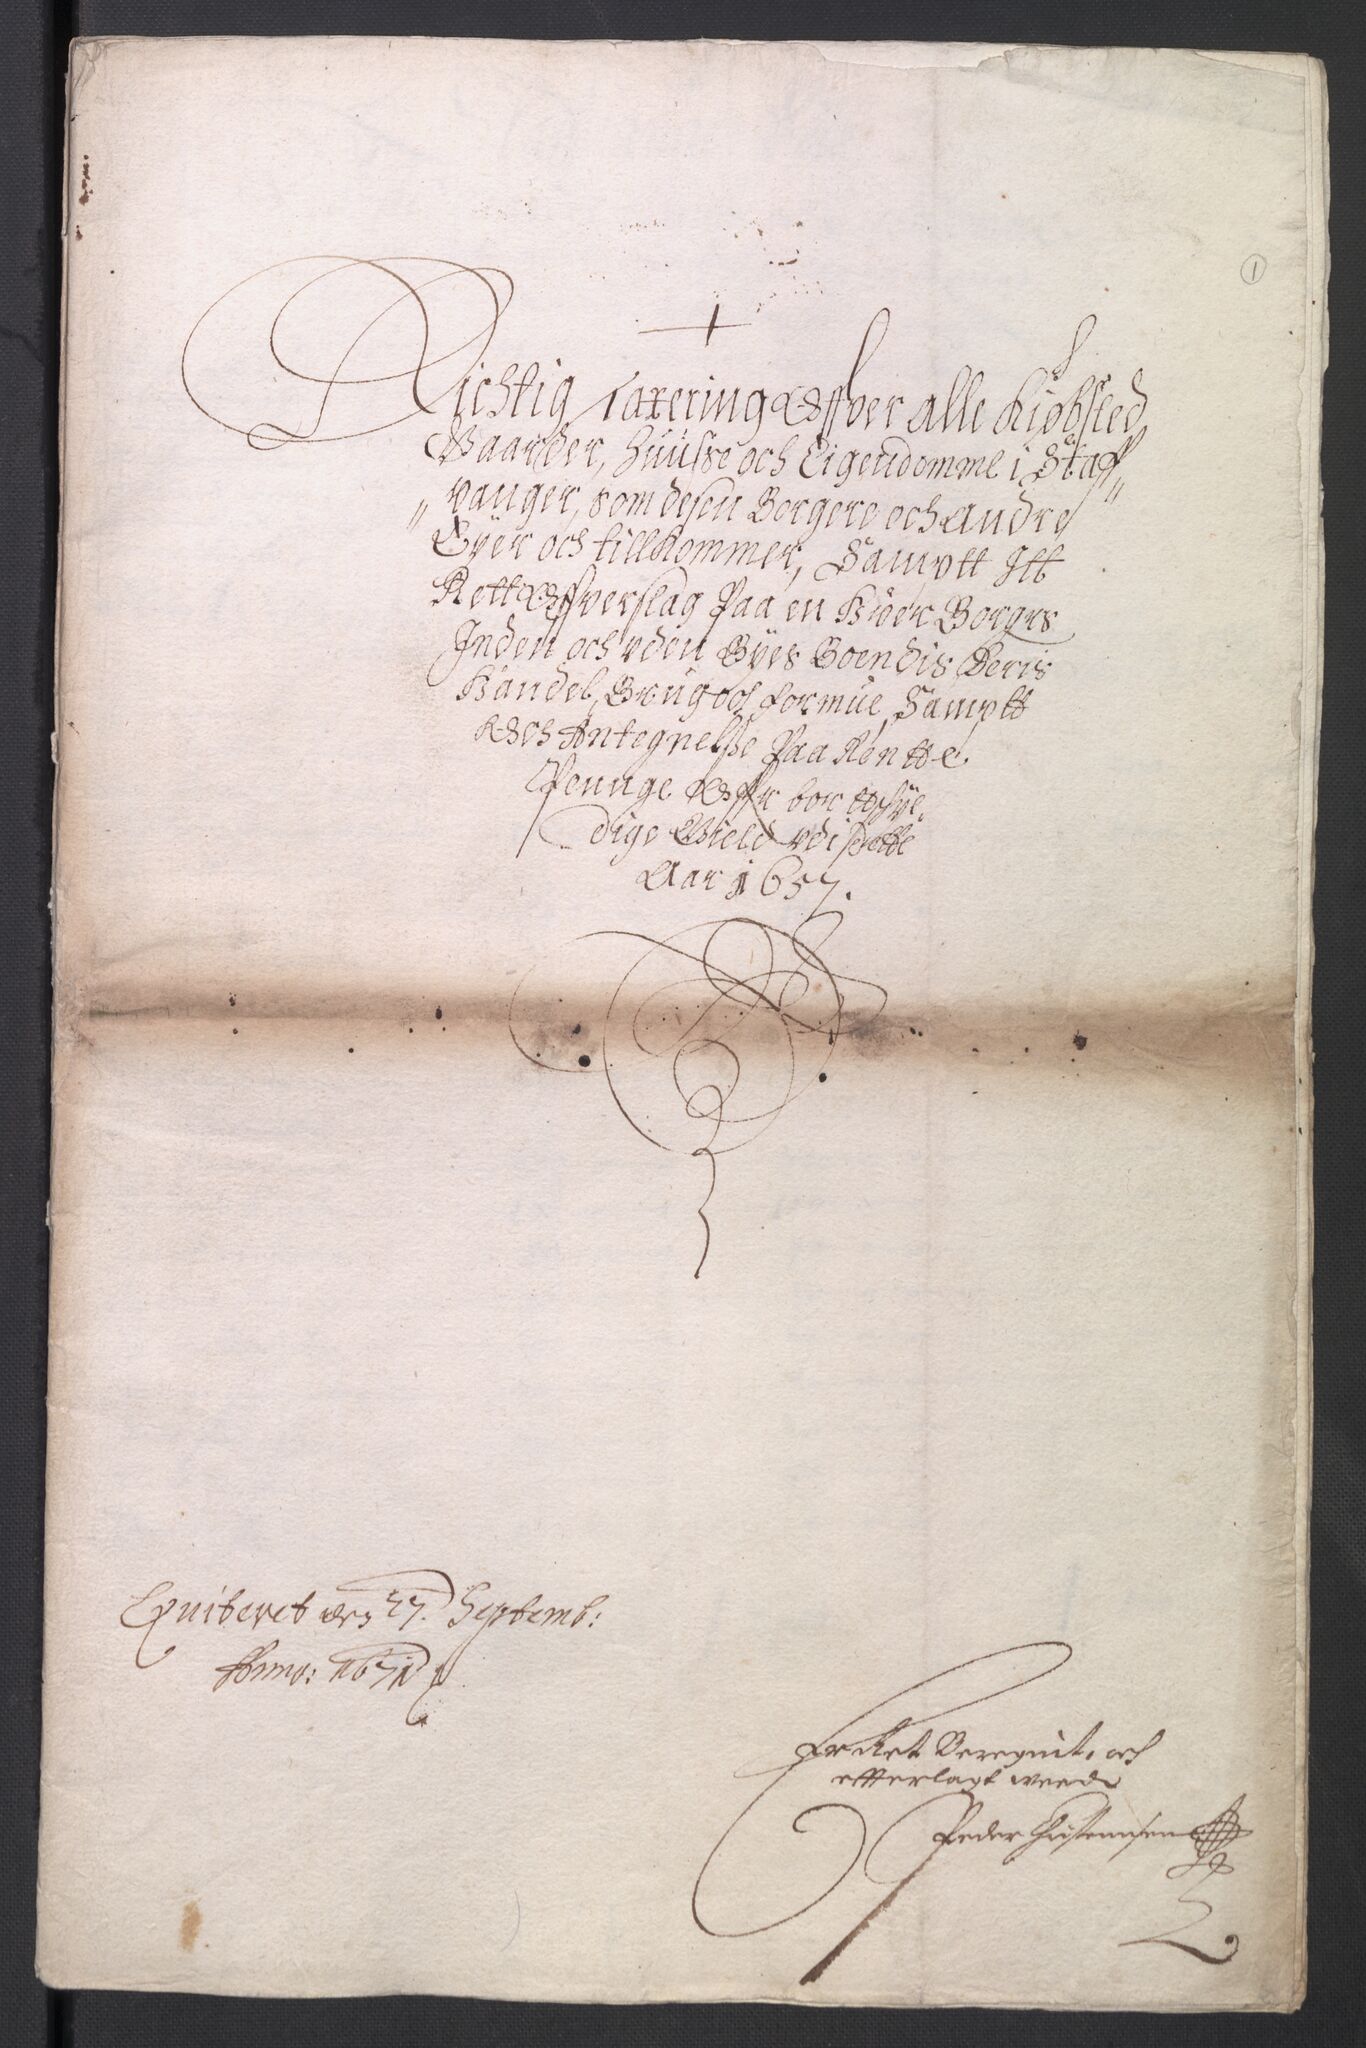 1
Richtig Taxering Offver alle Kiøbsted
Gaarder, Huusse och Eigendomme i Staff"
"vanger, som desen Borgere och Andre
Eyer och tillkommer, Sampt Itt
Rett Offverslag Paa en hver Borgrs
Inden och vden Byes Boendis Deris
Handel, Brug och formue, Samptt
Och Antegnelse Paa Rentte
Penge Offr bortt schyl„
dige Gield vdi dette
Aar 1657.
Quiteret den 27. Septemb:
Anno: 1671
Beregnit, och
efterlagt
Peder